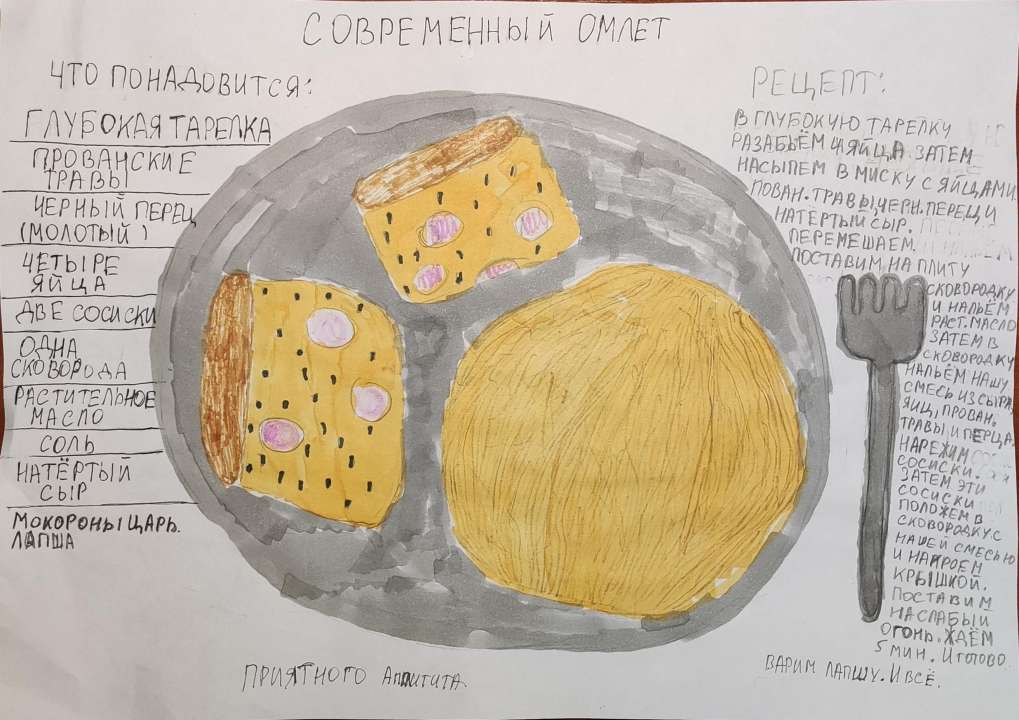 СОВРЕМЕННЫЙ ОМЛЕТ
ЧТО ПОНАДОВИТСЯ:
ГЛУБОКАЯ ТАРЕЛКА
ПРОВАНСКИЕ
ТРАВЫ
ЧЕРНЫЙ ПЕРЕЦ
(МОЛОТЫЙ)
ЧЕТЫРЕ
ЯЙЦА
ДВЕ СОСИСКИ
ОДНА
СКОВОРОДА
РАСТИТЕЛЬНОЕ
МАСЛО
СОЛЬ
НАТЁРТЫЙ
СЫР
МОКОРОНЫ ЦАРЬ.
ЛАПША
РЕЦЕПТ:
В ГЛУБОКУЮ ТАРЕЛКУ
РАЗАБЬЁМ 4 ЯЙЦА. ЗАТЕМ
НАСЫПЕМ В МИСКУ С ЯЙЦАМИ
ПОВАН. ТРАВЫ, ЧЕРН. ПЕРЕЦ И
НАТЕРТЫЙ СЫР.
ПЕРЕМЕШАЕМ.
ПОСТАВИМ НА ПЛИТУ
СКОВОРОДКУ
И НАЛЬЁМ
РАСТ. МАСЛО
ЗАТЕМ В
СКОВОРОДКУ
НАЛЬЁМ НАШУ
СМЕСЬ ИЗ СЫРА,
ЯИЦ, ПРОВАН.
ТРАВЫ И ПЕРЦА.
НАРЕЖИМ
СОСИСКИ.
ЗАТЕМ ЭТИ
СОСИСКИ
ПОЛОЖЕМ В
СКОВОРОДКУ С
НАШЕЙ СМЕСЬЮ
И НАКРОЕМ
КРЫШКОЙ.
ПОСТАВИМ
НА СЛАБЫЙ
ОГОНЬ. ЖДЁМ
5 МИН. И ГОТОВО
ВАРИМ ЛАПШУ. И ВСЁ.
ПРИЯТНОГО АППИТИТА.